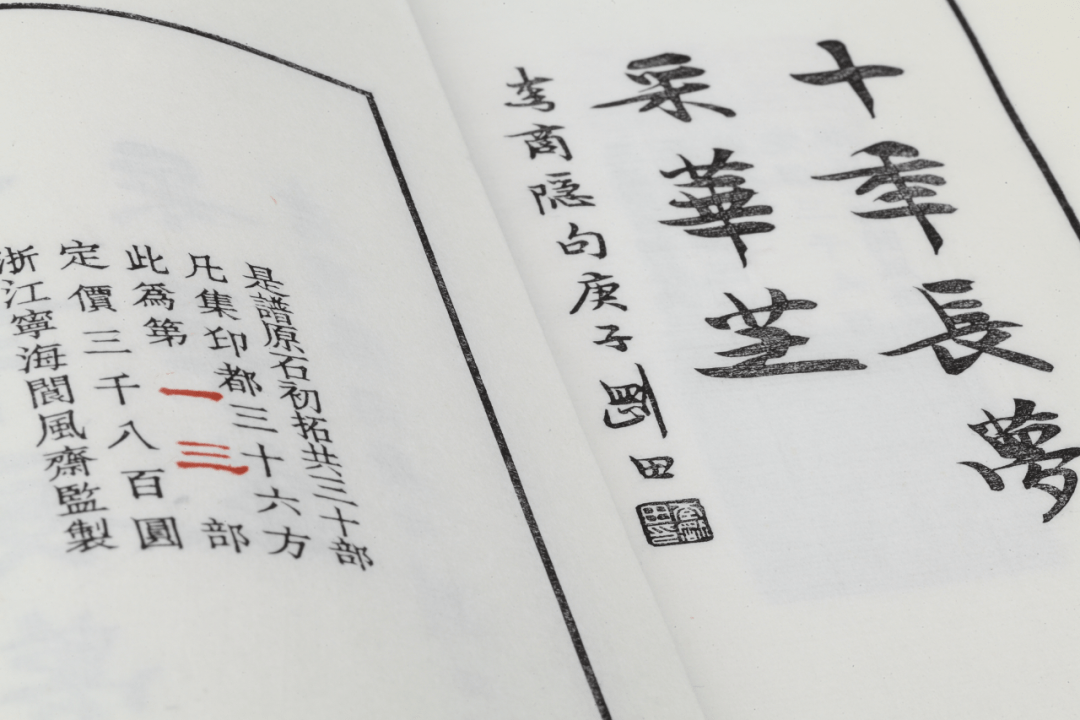 十秊長夢
采華芝
李商隐句庚子剛田
是譜原石初拓共三十部
凡集印都三十六方
此爲第一三部
定價三千八百圓
浙江寧海閬風齋監製